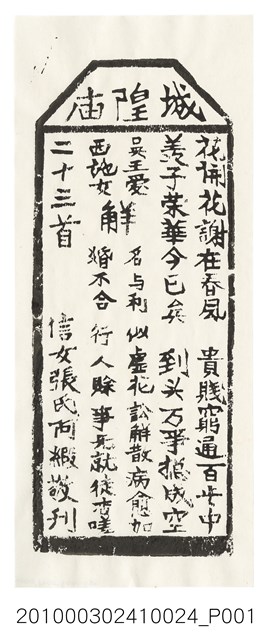 城隍庙
花開花謝在春風 貴賤窮通百歲中
羨子榮華今已矣 到头万事摠成空
吳王愛 解 名与利 似虛花 訟解散 病愈加
西地女 婚不合 行人賖 事无就 徒
二十三首 信女張氏阿緞敬刊
201000302410024_P001